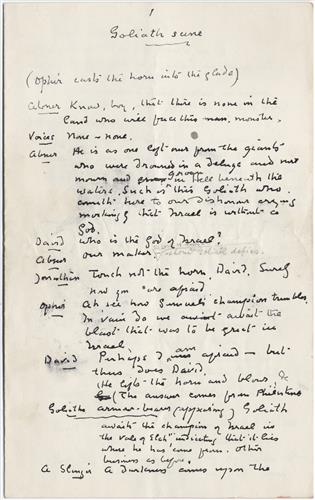 1
Goliath scene
(Ophir casts the horn into the glade)
Abner Know, boy, that there is none in the
land who will face this man, monster.
Voices None - none.
Abner He is as one left over from the giants
who were drowned in a deluge and now
mourn and groan in Hell beneath the
waters. Such is this Goliath who
cometh here to our dishonour crying
mockingly that Israel is without a
God.
David Who is the God of Israel?
Abner Our maker
Jonathan Touch not the horn, David. Surely
now you are afraid
Ophir Ah see how Samuel's champion trembles
In vain do we await the
blast that was to be great in
Israel
David Perhaps I am afraid - but
thus does David.
(He lifts the horn and blows. &c
(The answer comes from Philistines
Goliath's armour-bearer (appearing) Goliath
awaits the champion of Israel in
the vale of Elah indicating that it lies
where he has come from. Other
business as before.
A Slinger A darkness comes upon the